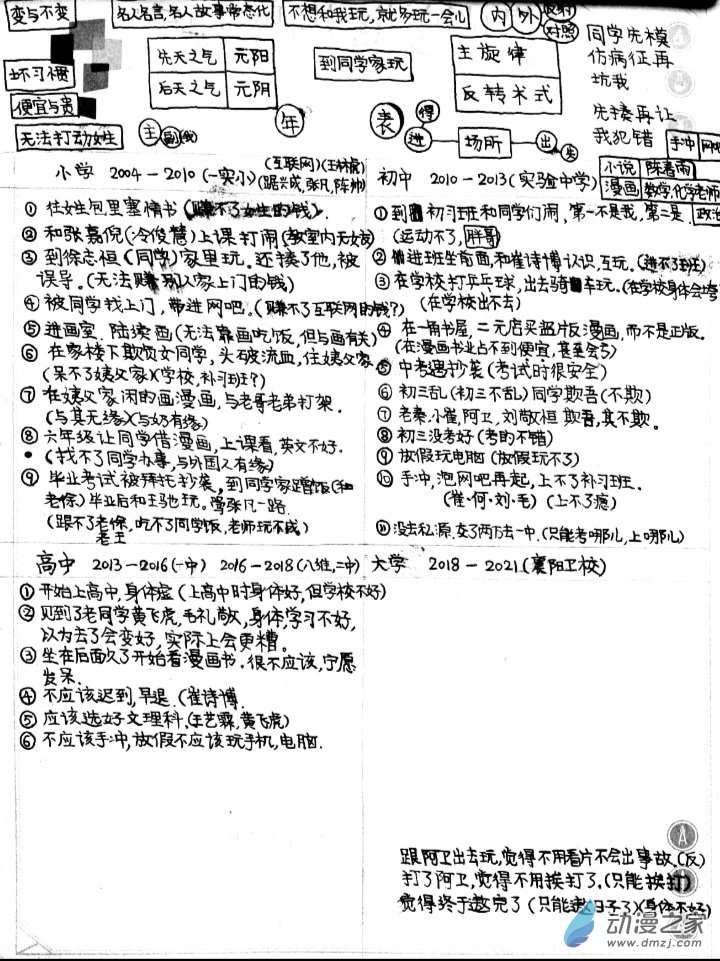 变与不变
名人名言,名人故事常态化
不想和我玩,就多玩一会儿
内 外
反射
对照
坏习惯
便宜与贵
无法打动女生
先天之气 元阳
后天之气 元阴
到同学家玩
主旋律
反转术式
同学先模
仿病征再
坑我
先揍再让
我犯错
主 副(我)
年
表
得
进 场所 出
失
手冲
小说 陈春雨
漫画 数学,化学老师
政治
小学 2004-2010(一实小)
(互联网)
初中 2010-2013(实验中学)
① 往女生包里塞情书(赚不了女生的钱).
② 和张嘉倪(冷俊慧)上课打闹(教室内无女孩)
③ 到徐志恒(同学)家里玩.还揍了他,被
误导.(无法赚到人家上门的钱)
④ 被同学找上门,带进网吧。(赚不了互联网的钱?)
⑤ 进画室.陆续画(无法靠画吃饭,但与画有关)
⑥ 在家楼下欺负女同学,头破流血,住姨父家
(呆不了姨父家)(学校,补习班?)
⑦ 在姨父家闲的画漫画,与老哥老弟打架.
(与其无缘)(与奶有缘)
⑧ 六年级让同学借漫画,上课看,英文不好.
(找不了同学办事,与外国人有缘)
⑨ 毕业考试被拜托抄袭,到同学家蹭饭(和
老徐)毕业后和王驰玩。骂张凡一路.
(跟不了老徐,吃不了同学饭,老师玩不成)
老王
① 到初习班和同学们闹,第一不是我,第二是.
(运动不了,胖哥)
② 进班坐前面,和崔诗博认识,互玩。(进不了班)
③ 在学校打乒乓球,出去骑车玩。(在学校身体会垮)
(在学校出不去)
④ 在一角书屋,二元店买盗版反漫画,而不是正版。
(在漫画书业占不到便宜,甚至会亏)
⑤ 中考遇抄袭(考试时很安全)
⑥ 初三乱(初三不乱)同学欺吾(不欺)
⑦ 老秦,小崔,阿卫,刘敬恒欺吾,其不欺。
⑧ 初三没考好(考的不错)
⑨ 放假玩电脑(放假玩不了)
⑩ 手冲,泡网吧再起,上不了补习班.
(崔·何·刘·毛)(上不了瘾)
⑪没去私源,交了两万去一中.(只能考哪儿,上哪儿)
高中 2013-2016(一中) 2016-2018(八维,二中)
大学 2018-2021(襄阳卫校)
① 开始上高中,身体虚(上高中时身体好,但学校不好)
② 见到了老同学黄飞虎,毛礼敬,身体,学习不好,
以为去了会变好,实际上会更糟。
③ 坐在后面久了开始看漫画书.很不应该,宁愿
发呆.
④ 不应该迟到,早退.(崔诗博.
⑤ 应该选好文理科.(王艺霖,黄飞虎)
⑥ 不应该手冲,放假不应该玩手机,电脑.
跟阿卫出去玩,觉得不用看片不会出事故.(反)
打了阿卫,觉得不用挨打了.(只能挨打)
觉得终于熬完了(只能熬日子了)(身体不好)
动漫之家
www.dmzj.com